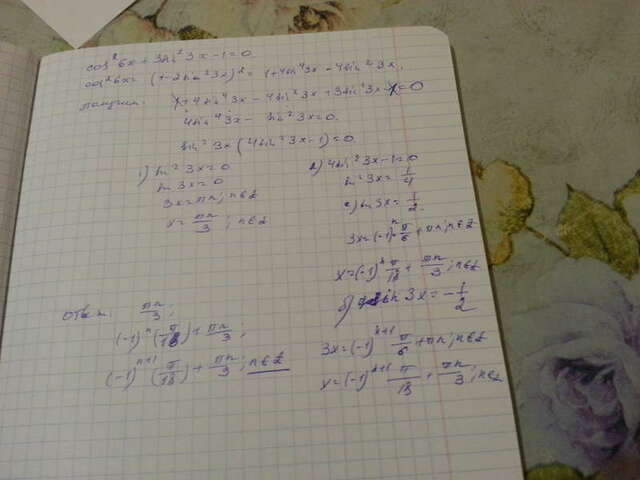 cos²6x + 3sin²3x - 1 = 0
cos²6x = (1 - 2sin²3x)² = 1 + 4sin⁴3x - 4sin²3x,
получим: 1 + 4sin⁴3x - 4sin²3x + 3sin²3x - 1 = 0
4sin⁴3x - sin²3x = 0.
sin²3x (4sin²3x - 1) = 0.
1) sin²3x = 0
sin3x = 0
3x = πn; n∈Z
x = πn/3; n∈Z
2) 4sin²3x - 1 = 0
sin²3x = 1/4
а) sin3x = 1/2.
3x = (-1)ⁿ π/6 + πn; n∈Z
x = (-1)ⁿ π/18 + πn/3; n∈Z
б) sin3x = -1/2
3x = (-1)ⁿ⁺¹ π/6 + πn; n∈Z
x = (-1)ⁿ⁺¹ π/18 + πn/3; n∈Z
Ответ: πn/3;
(-1)ⁿ (π/18) + πn/3;
(-1)ⁿ⁺¹ (π/18) + πn/3; n∈Z